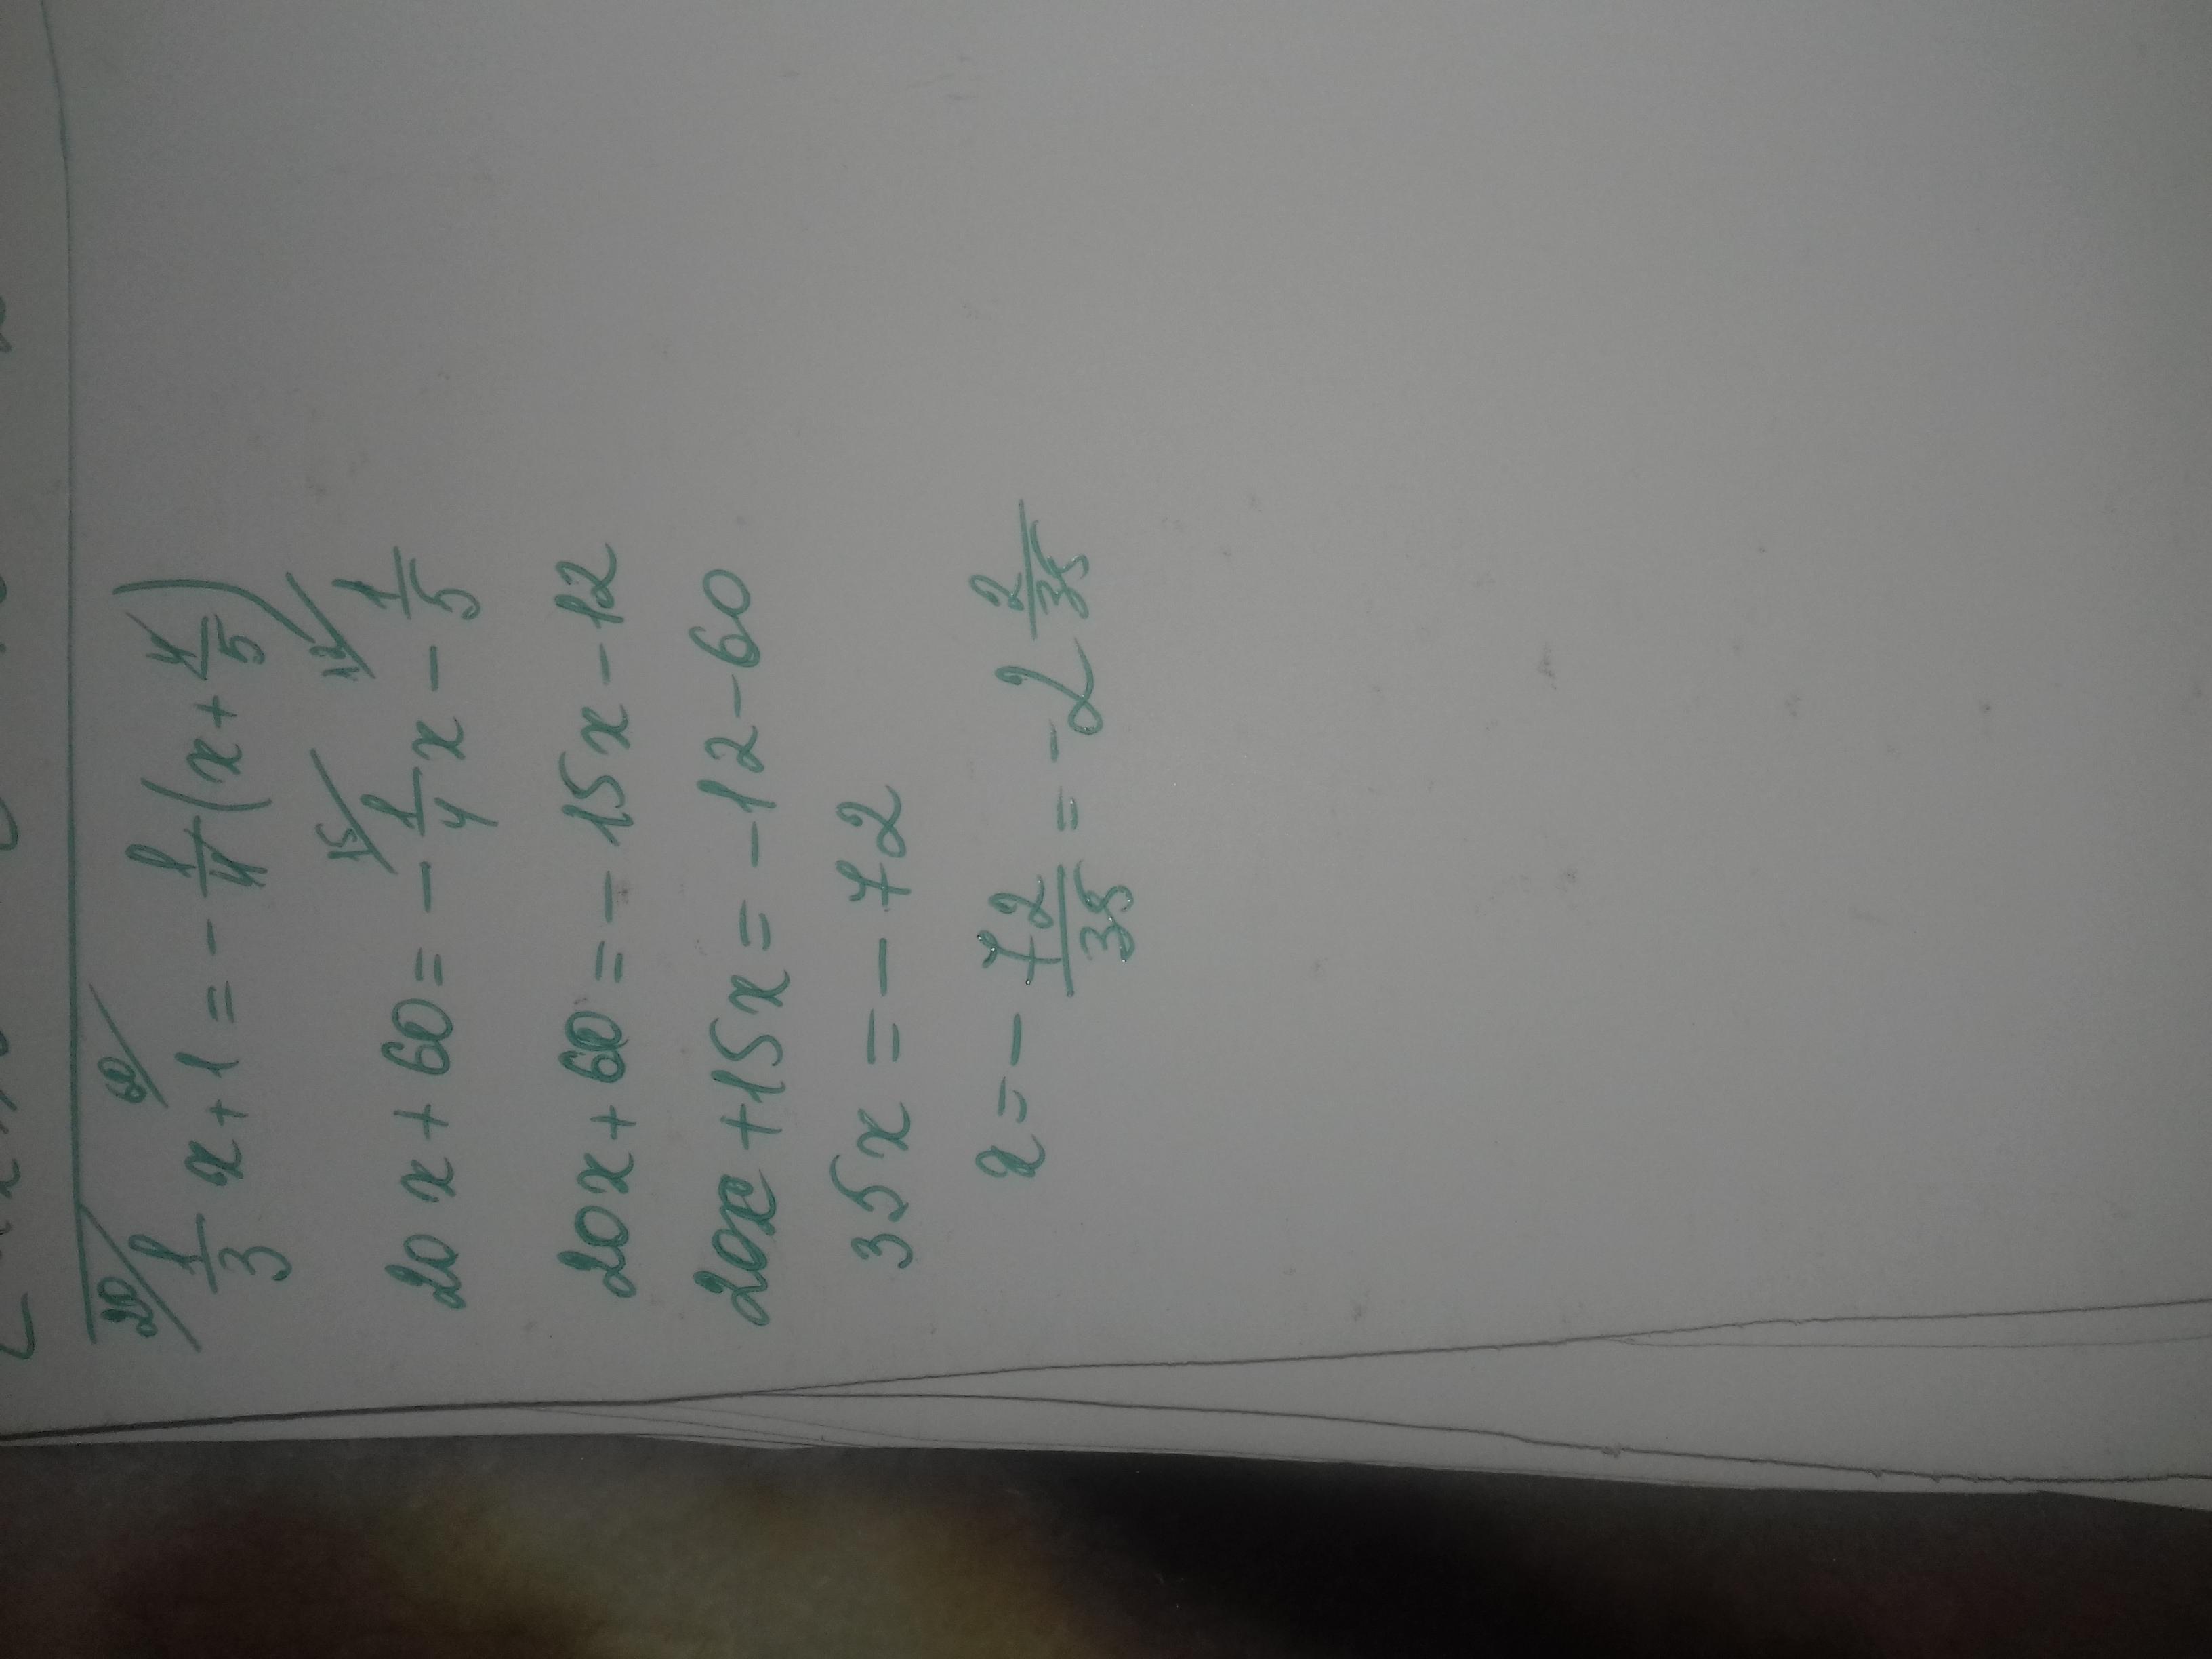 20/ 1/3 x + 1 60/ = - 1/4 (x + 4/5)
20x + 60 = - 15/ 1/4 x - 12/ 1/5
20x + 60 = - 15x - 12
20x + 15x = - 12 - 60
35x = - 72
x = - 72/35 = - 2 2/35